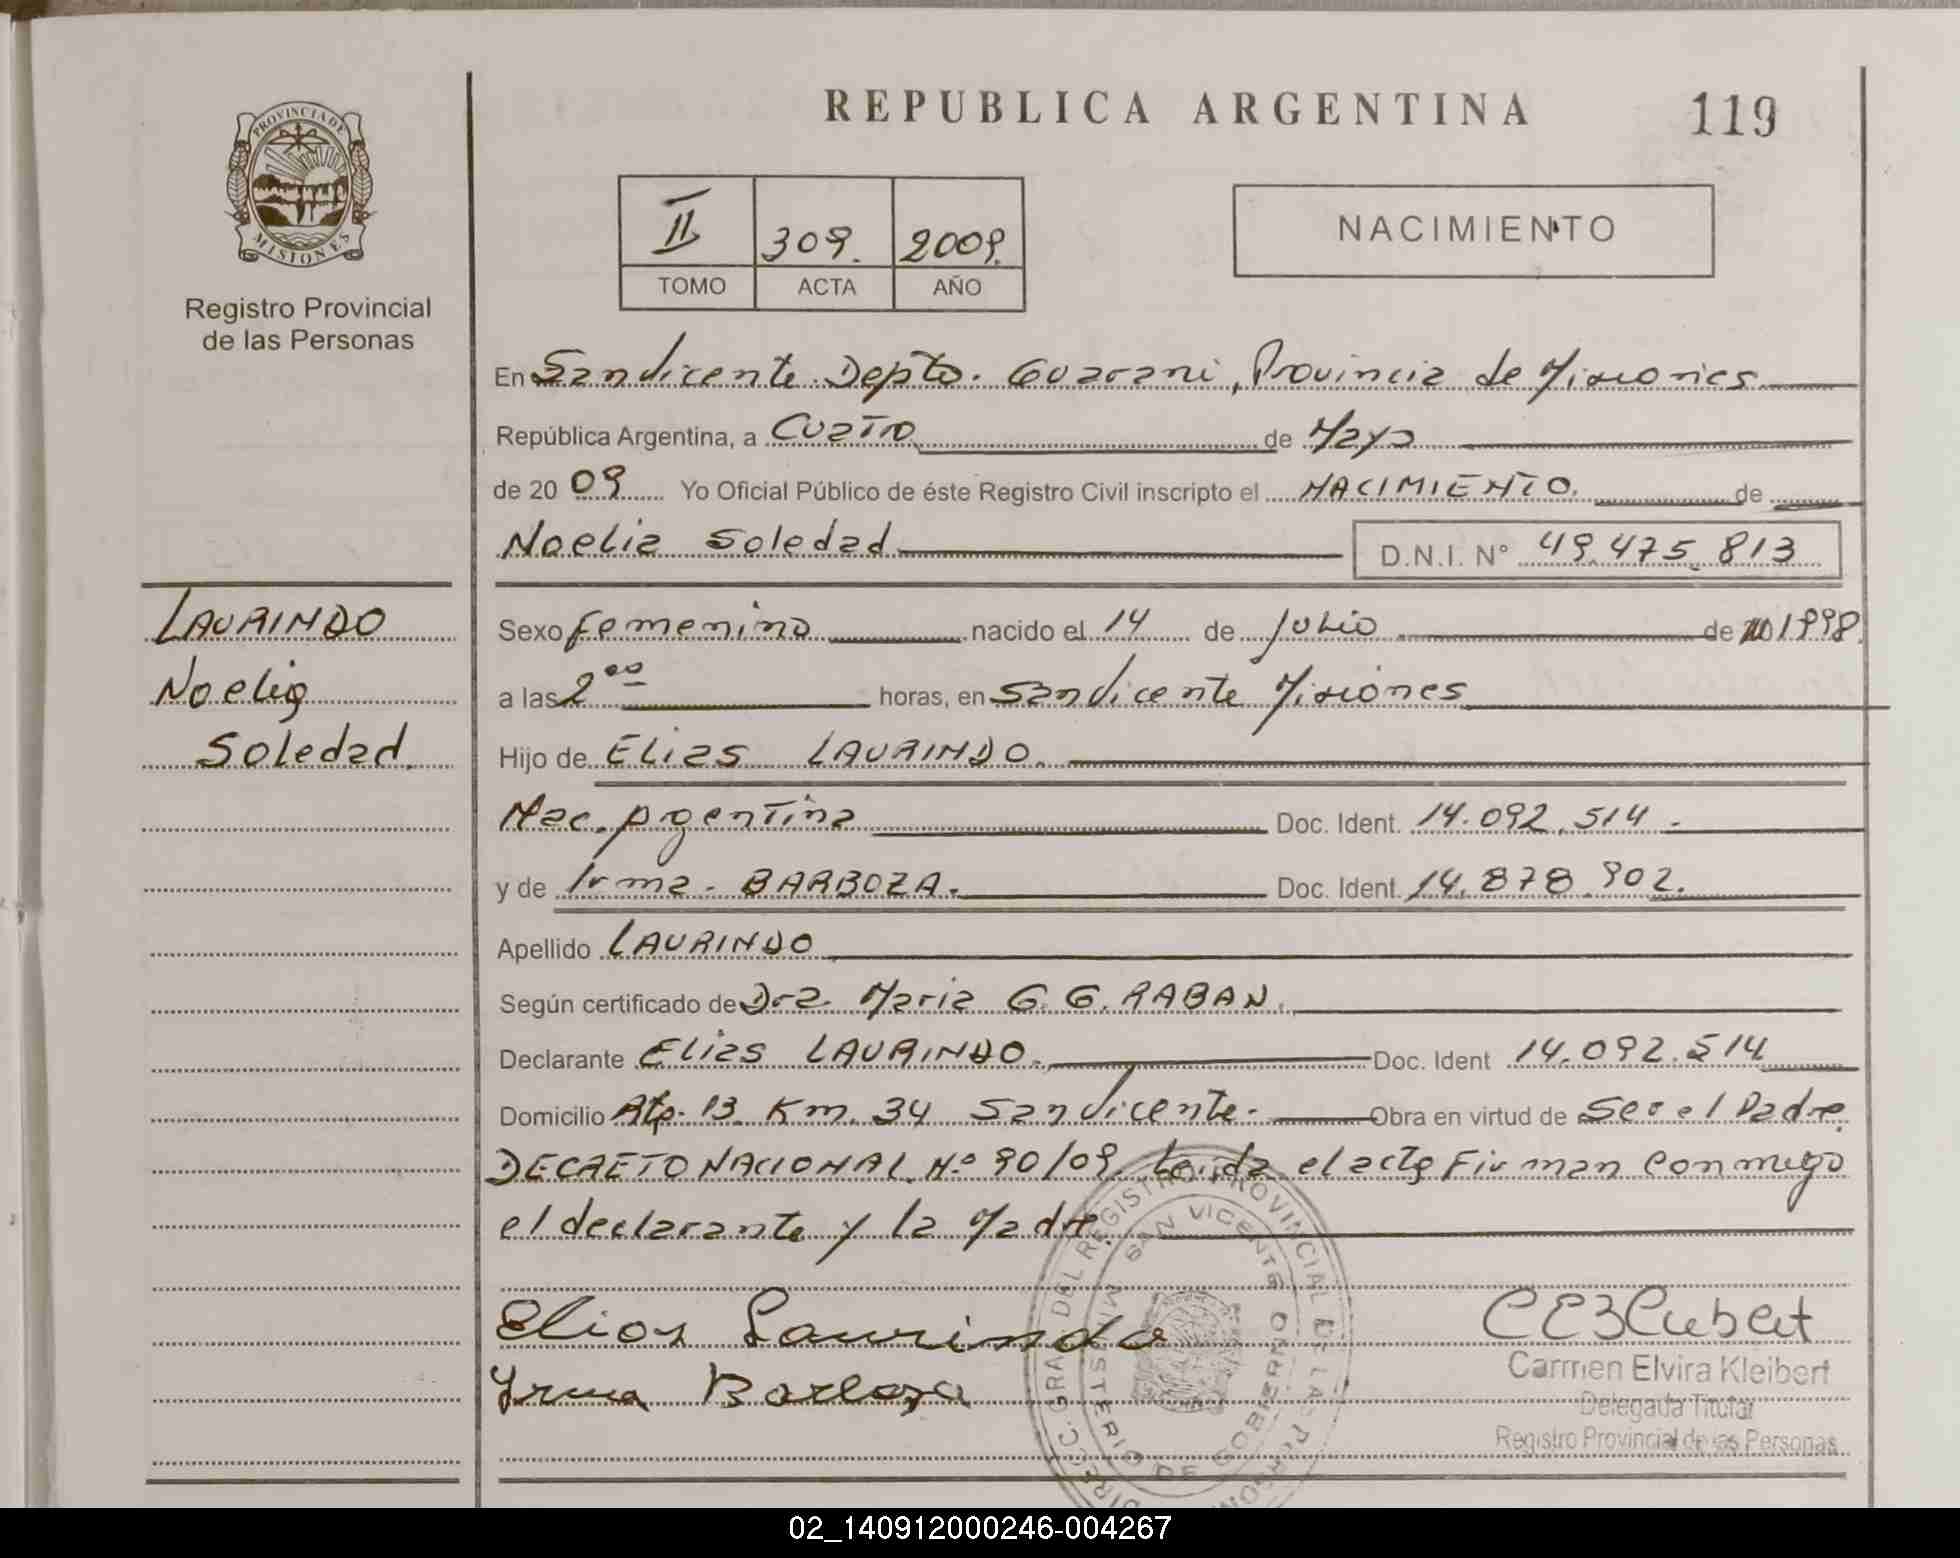 REPUBLICA ARGENTINA
119
PROVINCIA DE
MISIONES
Registro Provincial
de las Personas
II 309. 2009.
TOMO ACTA AÑO
NACIMIENTO
En San Vicente. Depto. Guarani, Provincia de Misiones
República Argentina, a Cuatro de Mayo
de 20 09 Yo Oficial Público de éste Registro Civil inscripto el NACIMIENTO. de
Noelia Soledad D.N.I. N° 49.475.813
LAURINDO
Noelia
Soledad.
Sexo femenino nacido el 14 de Julio de 1998.
a las 2 00 horas, en San Vicente Misiones
Hijo de Elias LAURINDO.
Nac. Argentina Doc. Ident. 14.092.514.
y de Irma. BARBOZA. Doc. Ident. 14.878.902.
Apellido LAURINDO
Según certificado de Dra. Maria G. G. RABAN.
Declarante Elias LAURINDO. Doc. Ident 14.092.514
Domicilio Rta. 13. Km. 34 San Vicente. Obra en virtud de Ser el Padre.
DECRETO NACIONAL. N° 90/09. Leida el acta Firman Conmigo
el declarante y la Madre.
Elias Laurindo
Yrma Barboza
Carmen Elvira Kleibert
Delegada Titular
Registro Provincial de las Personas
DIRECC. GRAL. DEL REGISTRO PROVINCIAL DE LAS PERSONAS
MINISTERIO DE GOBIERNO
SAN VICENTE
02_140912000246-004267